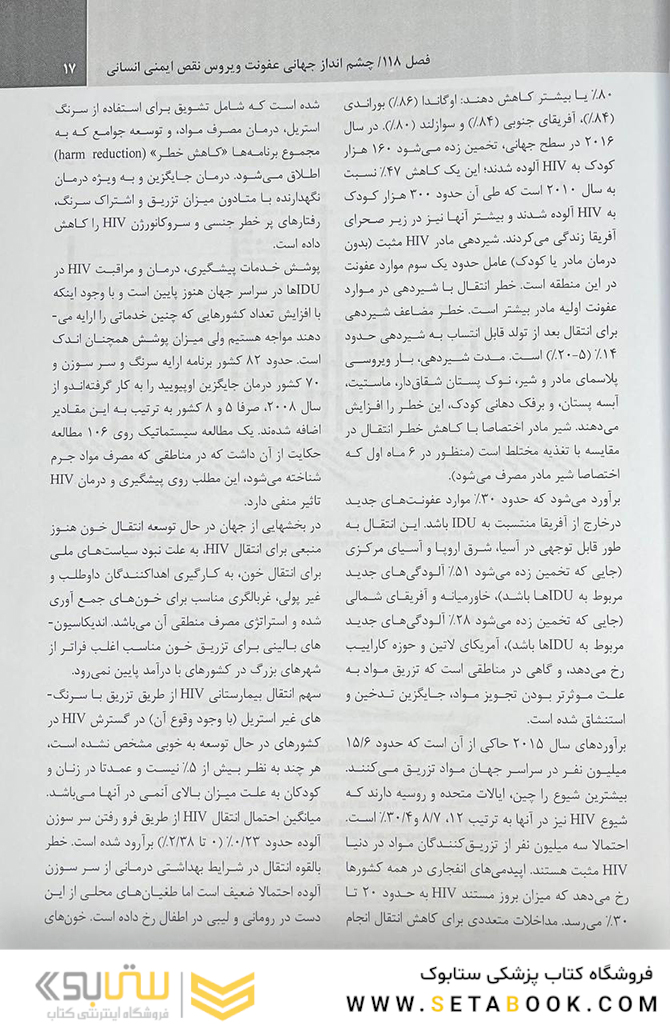 فصل ۱۱۸/ چشم انداز جهانی عفونت ویروس نقص ایمنی انسانی
۱۷
۸۰٪ یا بیشتر کاهش دهند: اوگاندا (۸۶٪) بوراندی
(۸۴٪)، آفریقای جنوبی (۸۴٪) و سوازلند (۸۰٪). در سال
۲۰۱۶ در سطح جهانی، تخمین زده می‌شود ۱۶۰ هزار
کودک به HIV آلوده شدند؛ این یک کاهش ۴۷٪ نسبت
به سال ۲۰۱۰ است که طی آن حدود ۳۰۰ هزار کودک
به HIV آلوده شدند و بیشتر آنها نیز در زیر صحرای
آفریقا زندگی می‌کردند. شیردهی مادر HIV مثبت (بدون
درمان مادر یا کودک) عامل حدود یک سوم موارد عفونت
در این منطقه است. خطر انتقال با شیردهی در موارد
عفونت اولیه مادر بیشتر است. خطر مضاعف شیردهی
برای انتقال بعد از تولد قابل انتساب به شیردهی حدود
۱۴٪ (۵-۲۰٪) است. مدت شیردهی، بار ویروسی
پلاسمای مادر و شیر، نوک پستان شقاق‌دار، ماستیت،
آبسه پستان، و برفک دهانی کودک، این خطر را افزایش
می‌دهند. شیر مادر اختصاصا با کاهش خطر انتقال در
مقایسه با تغذیه مختلط است (منظور در ۶ ماه اول که
اختصاصا شیر مادر مصرف می‌شود).
برآورد می‌شود که حدود ۳۰٪ موارد عفونت‌های جدید
درخارج از آفریقا منتسبت به IDU باشد. این انتقال به
طور قابل توجهی در آسیا، شرق اروپا و آسیای مرکزی
(جایی که تخمین زده می‌شود ۵۱٪ آلودگی‌های جدید
مربوط به IDUها باشد)، خاورمیانه و آفریقای شمالی
(جایی که تخمین زده می‌شود ۲۸٪ آلودگی‌های جدید
مربوط به IDUها باشد)، آمریکای لاتین و حوزه کاراییب
رخ می‌دهد، و گاهی در مناطقی است که تزریق مواد به
علت موثرتر بودن تجویز مواد، جایگزین تدخین و
استنشاق شده است.
برآوردهای سال ۲۰۱۵ حاکی از آن است که حدود ۱۵/۶
میلیون نفر در سراسر جهان مواد تزریق می‌کنند.
بیشترین شیوع را چین، ایالات متحده و روسیه دارند که
شیوع HIV نیز در آنها به ترتیب ۱۲، ۸/۷ و۳۰/۴٪ است.
احتمالا سه میلیون نفر از تزریق‌کنندگان مواد در دنیا
HIV مثبت هستند. اپیدمی‌های انفجاری در همه کشورها
رخ می‌دهد که میزان بروز مستند HIV به حدود ۲۰ تا
۳۰٪ می‌رسد. مداخلات متعددی برای کاهش انتقال انجام
شده است که شامل تشویق برای استفاده از سرنگ
استریل، درمان مصرف مواد، و توسعه جوامع که به
مجموع برنامه‌ها «کاهش خطر» (harm reduction)
اطلاق می‌شود. درمان جایگزین و به ویژه درمان
نگهدارنده با متادون میزان تزریق و اشتراک سرنگ،
رفتارهای پر خطر جنسی و سروکانورژن HIV را کاهش
داده است.
پوشش خدمات پیشگیری، درمان و مراقبت HIV در
IDUها در سراسر جهان هنوز پایین است و با وجود اینکه
با افزایش تعداد کشورهایی که چنین خدماتی را ارایه می-
دهند مواجه هستیم ولی میزان پوشش همچنان اندک
است. حدود ۸۲ کشور برنامه ارایه سرنگ و سر سوزن و
۷۰ کشور درمان جایگزین اوپیویید را به کار گرفته‌اندو از
سال ۲۰۰۸، صرفا ۵ و ۸ کشور به ترتیب به این مقادیر
اضافه شده‌ند. یک مطالعه سیستماتیک روی ۱۰۶ مطالعه
حکایت از آن داشت که در مناطقی که مصرف مواد جرم
شناخته می‌شود، این مطلب روی پیشگیری و درمان HIV
تاثیر منفی دارد.
در بخشهایی از جهان در حال توسعه انتقال خون هنوز
منبعی برای انتقال HIV، به علت نبود سیاست‌های ملی
برای انتقال خون، به کارگیری اهداکنندگان داوطلب و
غیر پولی، غربالگری مناسب برای خون‌های جمع آوری
شده و استراتژی مصرف منطقی آن می‌باشد. اندیکاسیون-
های بالینی برای تزریق خون مناسب اغلب فراتر از
شهرهای بزرگ در کشورهای با درآمد پایین نمی‌رود.
سهم انتقال بیمارستانی HIV از طریق تزریق با سرنگ-
های غیر استریل (با وجود وقوع آن) در گسترش HIV در
کشورهای در حال توسعه به خوبی مشخص نشده است،
هر چند به نظر بیش از ۵٪ نیست و عمدتا در زنان و
کودکان به علت میزان بالای آنمی در آنها می‌باشد.
میانگین احتمال انتقال HIV از طریق فرو رفتن سر سوزن
آلوده حدود ۰/۲۳٪ (۰ تا ۲/۳۸٪) برآرود شده است. خطر
بالقوه انتقال در شرایط بهداشتی درمانی از سر سوزن
آلوده احتمالا ضعیف است اما طغیان‌های محلی از این
دست در رومانی و لیبی در اطفال رخ داده است. خون‌های
فروشگاه کتاب پزشکی ستابوک
WWW.SETABOOK.COM
ستابوک
فروشگاه اینترنتی کتاب